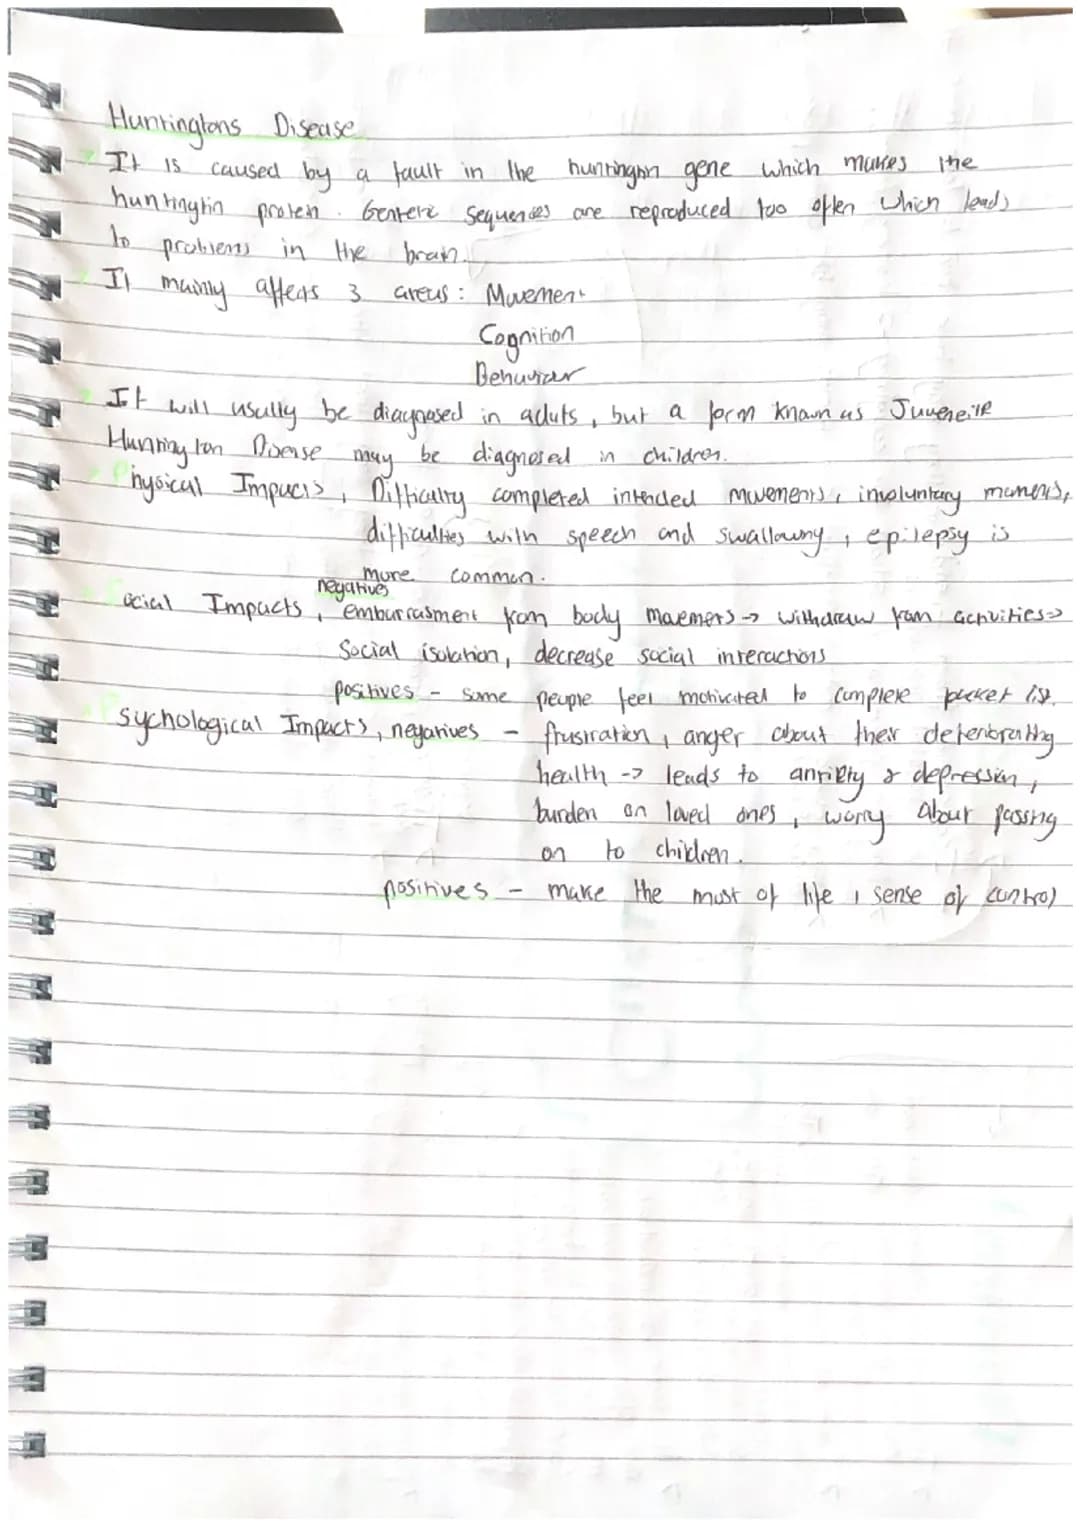 Huntingtons Disease
It is caused by a fault in the huntingtin gene which makes the
huntingtin protein. Genteric sequences are reproduced too often which leads
to problems in the brain.
It mainly affects 3 areas: Movement
Cognition
Behaviour
It will usully be diagnosed in adults, but a form known as Juveneile
Huntington Disease may be diagnosed in children.
Physical Impacts, Difficulty completed intended movements, involuntary moments,
difficulties with speech and swallowing, epilepsy is
more common.
negatives
Social Impacts, emburrasment from body movements -> withdraw from activities ->
Social isolation, decrease social interactions
positives - some people feel motivated to complete bucket list.
Psychological Impacts, negatives - frustration, anger about their deteriorating
health -> leads to anxiety & depression,
burden on loved ones, worry about passing
on to children.
positives - make the most of life, sense of control